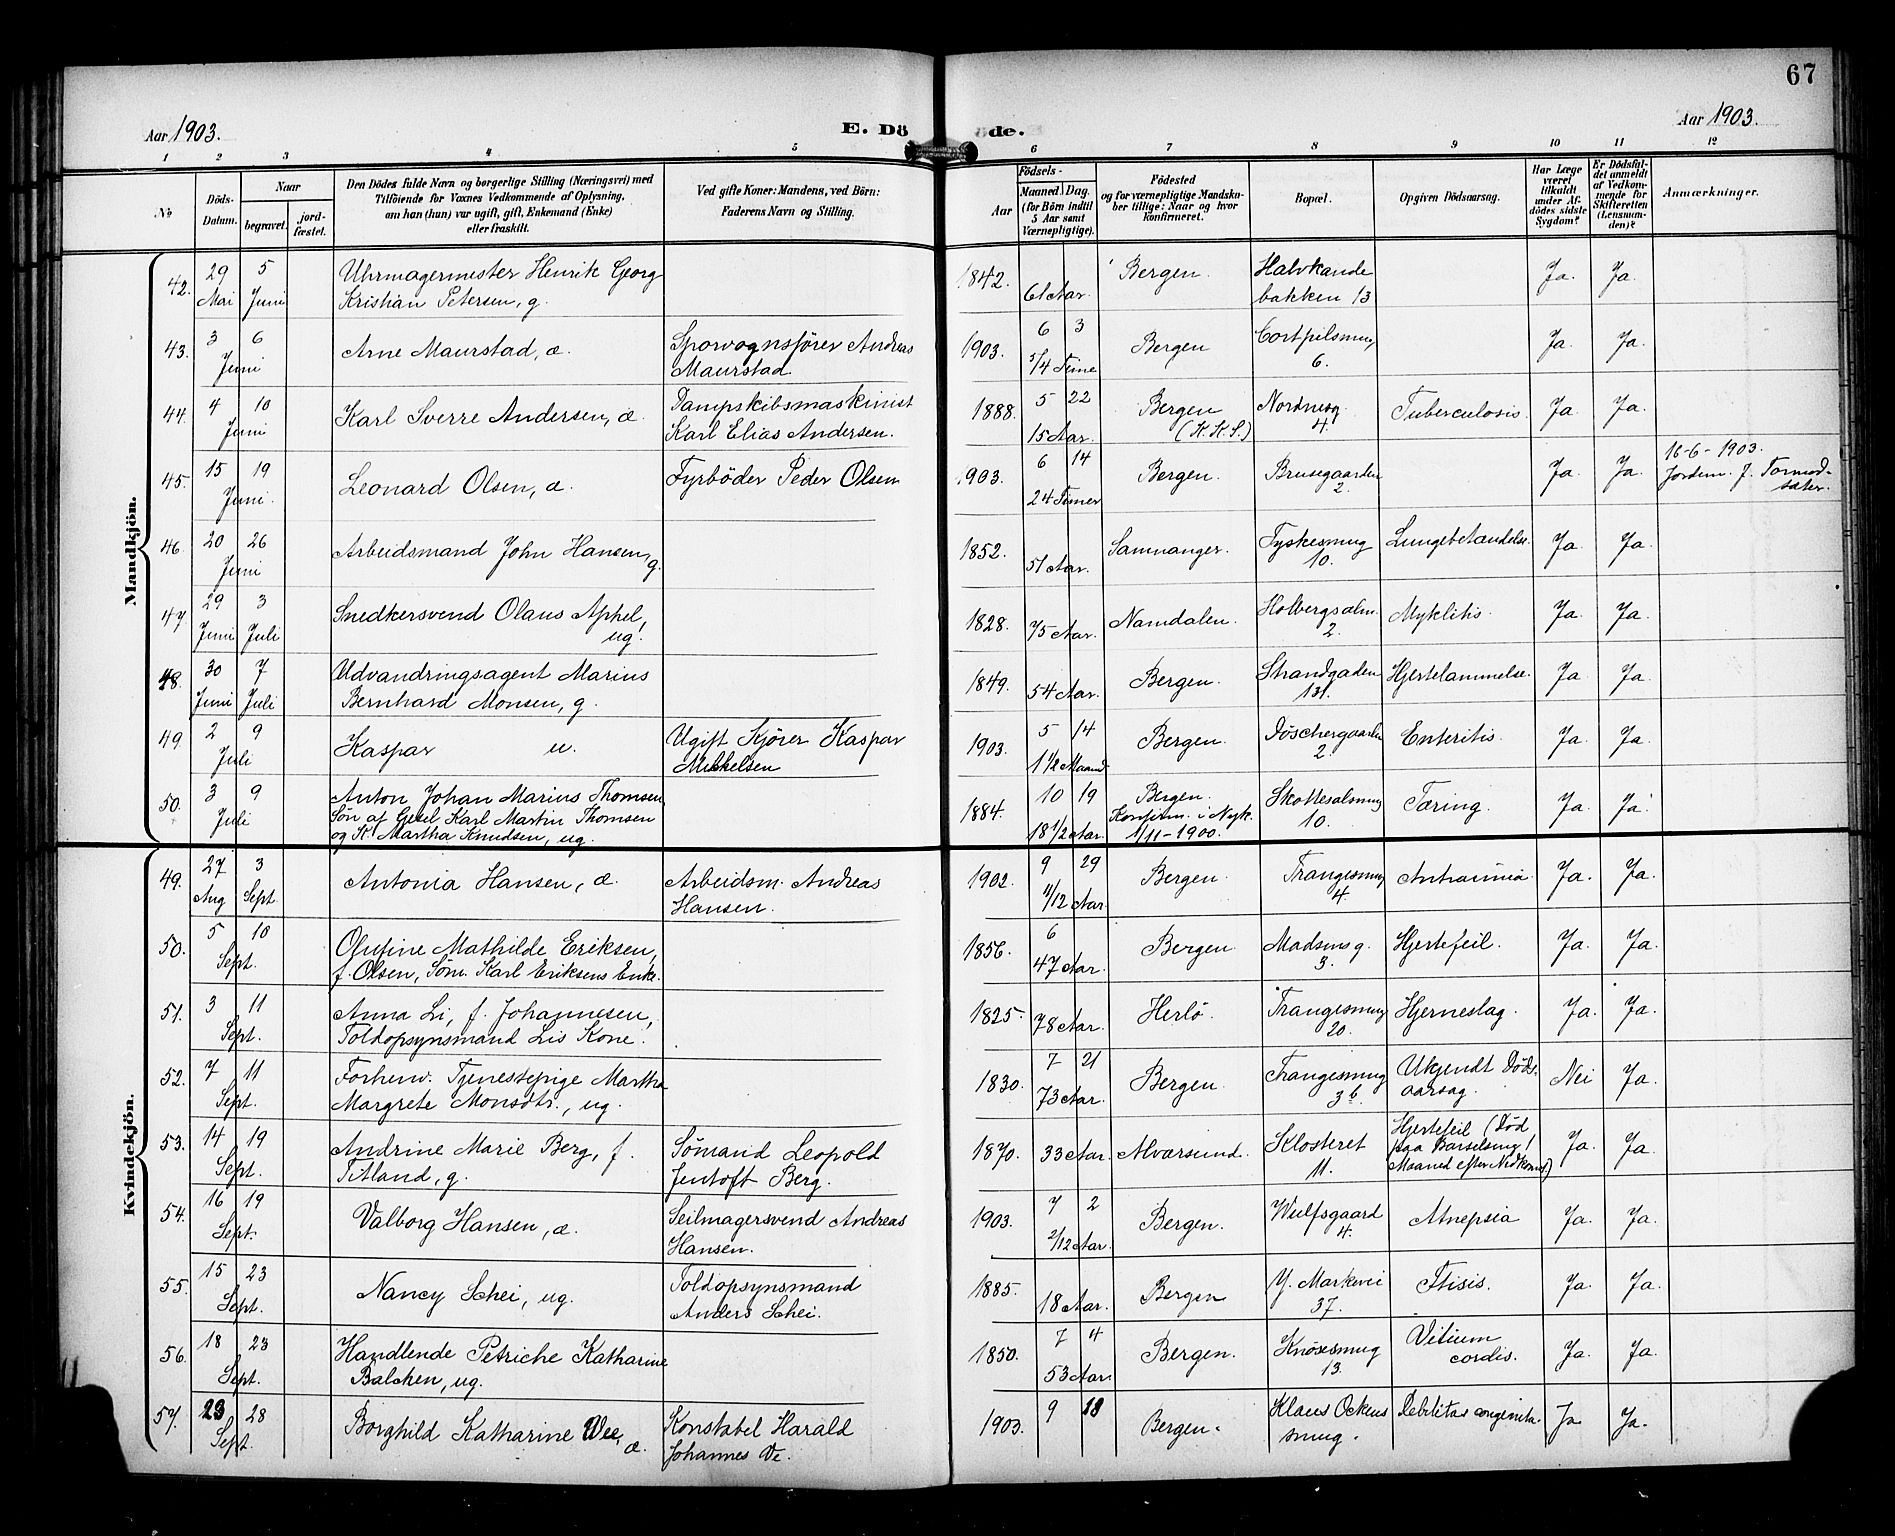 67
Aar 1903.
E. Dö
öde.
Aar 1903.
1 2 3 4 5 6 7 8 9 10 11 12
No
Döds-
Datum.
Naar
begravet.
jord-
fæstet.
Den Dödes fulde Navn og borgerlige Stilling (Næringsvei) med
Tilföiende for Voxnes Vedkommende af Oplysning,
om han (hun) var ugift, gift, Enkemand (Enke)
eller fraskilt.
Ved gifte Koner: Mandens, ved Börn:
Faderens Navn og Stilling.
Födsels-
Aar
Maaned. Dag.
(for Börn indtil
5 Aar samt
Værnepligtige).
Födested
og for værnepligtige Mandska-
ber tillige: Naar og hvor
konfirmeret.
Bopæl.
Opgiven Dödsaarsag.
Har Læge
været
tilkaldt
under Af-
dödes sidste
Sygdom?
Er Dödsfal-
det anmeldt
af Vedkom-
mende for
Skifteretten
(Lensman-
den)?
Anmærkninger.
Mandkjön.
42. 29 Mai 5 Juni Uhrmagermester Henrik Georg
Kristian Petersen, g. 1842. 61 Aar. Bergen. Halvkande
bakken 13 Ja. Ja.
43. 3 6 Juni Arne Maurstad, æ. Sporvognsfører Andreas
Maurstad. 1903. 6 3 5/4 Time Bergen Cortpilsmug
6. Ja. Ja.
44. 4 10 Juni Karl Sverre Andersen, æ. Dampskibsmaskinist
Karl Elias Andersen. 1888. 5 22 15 Aar. Bergen
(K.K.S.) Nordnesg.
4. Tuberculosis. Ja. Ja.
45. 15 19 Juni. Leonard Olsen, æ. Fyrbøder Peder Olsen 1903. 6 14 24 Timer Bergen. Brusegaarden
2. Ja. Ja. 16-6-1903.
Jordem. J. Tormod-
sæter.
46. 20 26 Juni Arbeidsmand John Hansen, g. 1852. 51 Aar. Samnanger. Tyskesmug
10. Lungebetændelse. Ja. Ja.
47. 29 Juni 3 Juli Snedkersvend Olaus Aphel,
ug. 1828. 75 Aar. Namdalen. Holbergsalm.
2. Myklitis. Ja. Ja.
48. 30 Juni 7 Juli Udvandringsagent Marius
Bernhard Monsen, g. 1849. 54 Aar. Bergen. Strandgaden
131. Hjertelammelse. Ja. Ja.
49. 2 9 Juli Kaspar u. Ugift Kjører Kaspar
Mikkelsen 1903. 5 14 1 1/2 Maaned Bergen. Døschergaarden
2. Enteritis. Ja. Ja.
50. 3 9 Juli Anton Johan Marius Thomsen
Søn af Gesel Karl Martin Thomsen
og K. Martha Knudsen, ug. 1884. 10 19 18 1/2 Aar. Bergen.
Konfirm. i Nyk.
1/11-1900. Skottesalsmug
10. Tæring. Ja. Ja.
Kvindekjön.
49. 27 Aug 3 Sept. Antonia Hansen, æ. Arbeidsm. Andreas
Hansen. 1902. 9 29 11/12 Aar. Bergen. Trangesmug
4. Ja. Ja.
50. 5 10 Sept. Olufine Mathilde Eriksen,
f. Olsen, Søm. Karl Eriksens Enke. 1856. 6 47 Aar. Bergen Madsensg.
3. Hjertefeil. Ja. Ja.
51. 3 11 Sept. Anna Li, f. Johannesen,
Toldopsynsmand Lis Kone. 1825. 78 Aar. Herlø. Trangesmug
20. Hjerneslag. Ja. Ja.
52. 7 11 Sept. Forhenv. Tjenestepige Martha
Margrete Monsdtr., ug. 1830. 7 21 73 Aar. Bergen. Trangesmug
3 b. Ukjendt Døds-
aarsag. Nei Ja.
53. 14 19 Sept. Andrine Marie Berg, f.
Titland, g. Sømand Leopold
Jentoft Berg. 1870. 33 Aar. Alversund. Klosteret
11. Hjertefeil (Død
paa Barselseng 1
Maaned efter Nedkomst) Ja. Ja.
54. 16 19 Sept. Valborg Hansen, æ. Seilmagersvend Andreas
Hansen. 1903. 7 2 2/12 Aar. Bergen. Wulfsgaard
4. Atrepsia Ja. Ja.
55. 15 23 Sept. Nancy Schei, ug. Toldopsynsmand
Anders Schei. 1885. 18 Aar. Bergen Y. Markevei
37. Ftisis. Ja. Ja.
56. 18 23 Sept. Handlende Petriche Katharine
Balchen, ug. 1850. 7 4 53 Aar. Bergen. Knøsesmug
13. Vitium
cordis. Ja. Ja.
57. 23 28 Sept. Borghild Katharine Vee,
æ. Konstabel Harald
Johannes Ve. 1903. 9 18 Bergen. Klaus Ockens
smug. Debilitas congenita. Ja Ja.